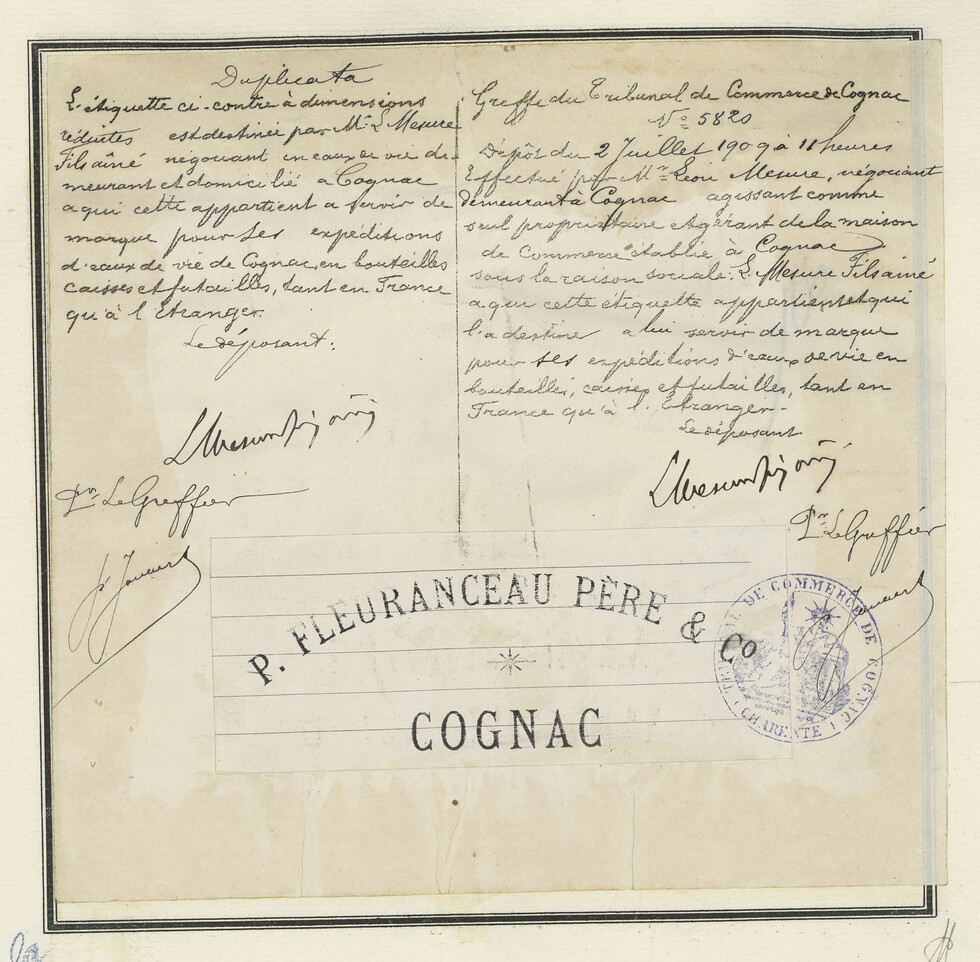 Duplicata
L'étiquette ci-contre à dimensions
réduites est destinée par Mr L. Mesure
Fils aîné négociant en eaux de vie de-
meurant et domicilié à Cognac
a qui cette appartient a servir de
marque pour ses expéditions
d'eaux de vie de Cognac, en bouteilles
caisses et futailles, tant en France
qu'à l'Etranger.
Le déposant:
L Mesure fils aîné
Pr. Le Greffier
Greffe du Tribunal de Commerce de Cognac
No 5820
Dépôt du 2 Juillet 1909 à 11 heures
Effectué par Mr Léon Mesure, négociant
demeurant à Cognac agissant comme
seul propriétaire et gérant de la maison
de Commerce établie à Cognac
sous la raison sociale: L. Mesure Fils aîné
a qui cette étiquette appartient et qui
l'a destine a lui servir de marque
pour ses expéditions d'eaux de vie en
bouteilles, caisses et futailles, tant en
France qu'à l'Etranger-
Le déposant
L Mesure fils aîné
Pr. Le Greffier
P. FLEURANCEAU PÈRE & Co
COGNAC
TRIBUNAL DE COMMERCE DE COGNAC
(CHARENTE)